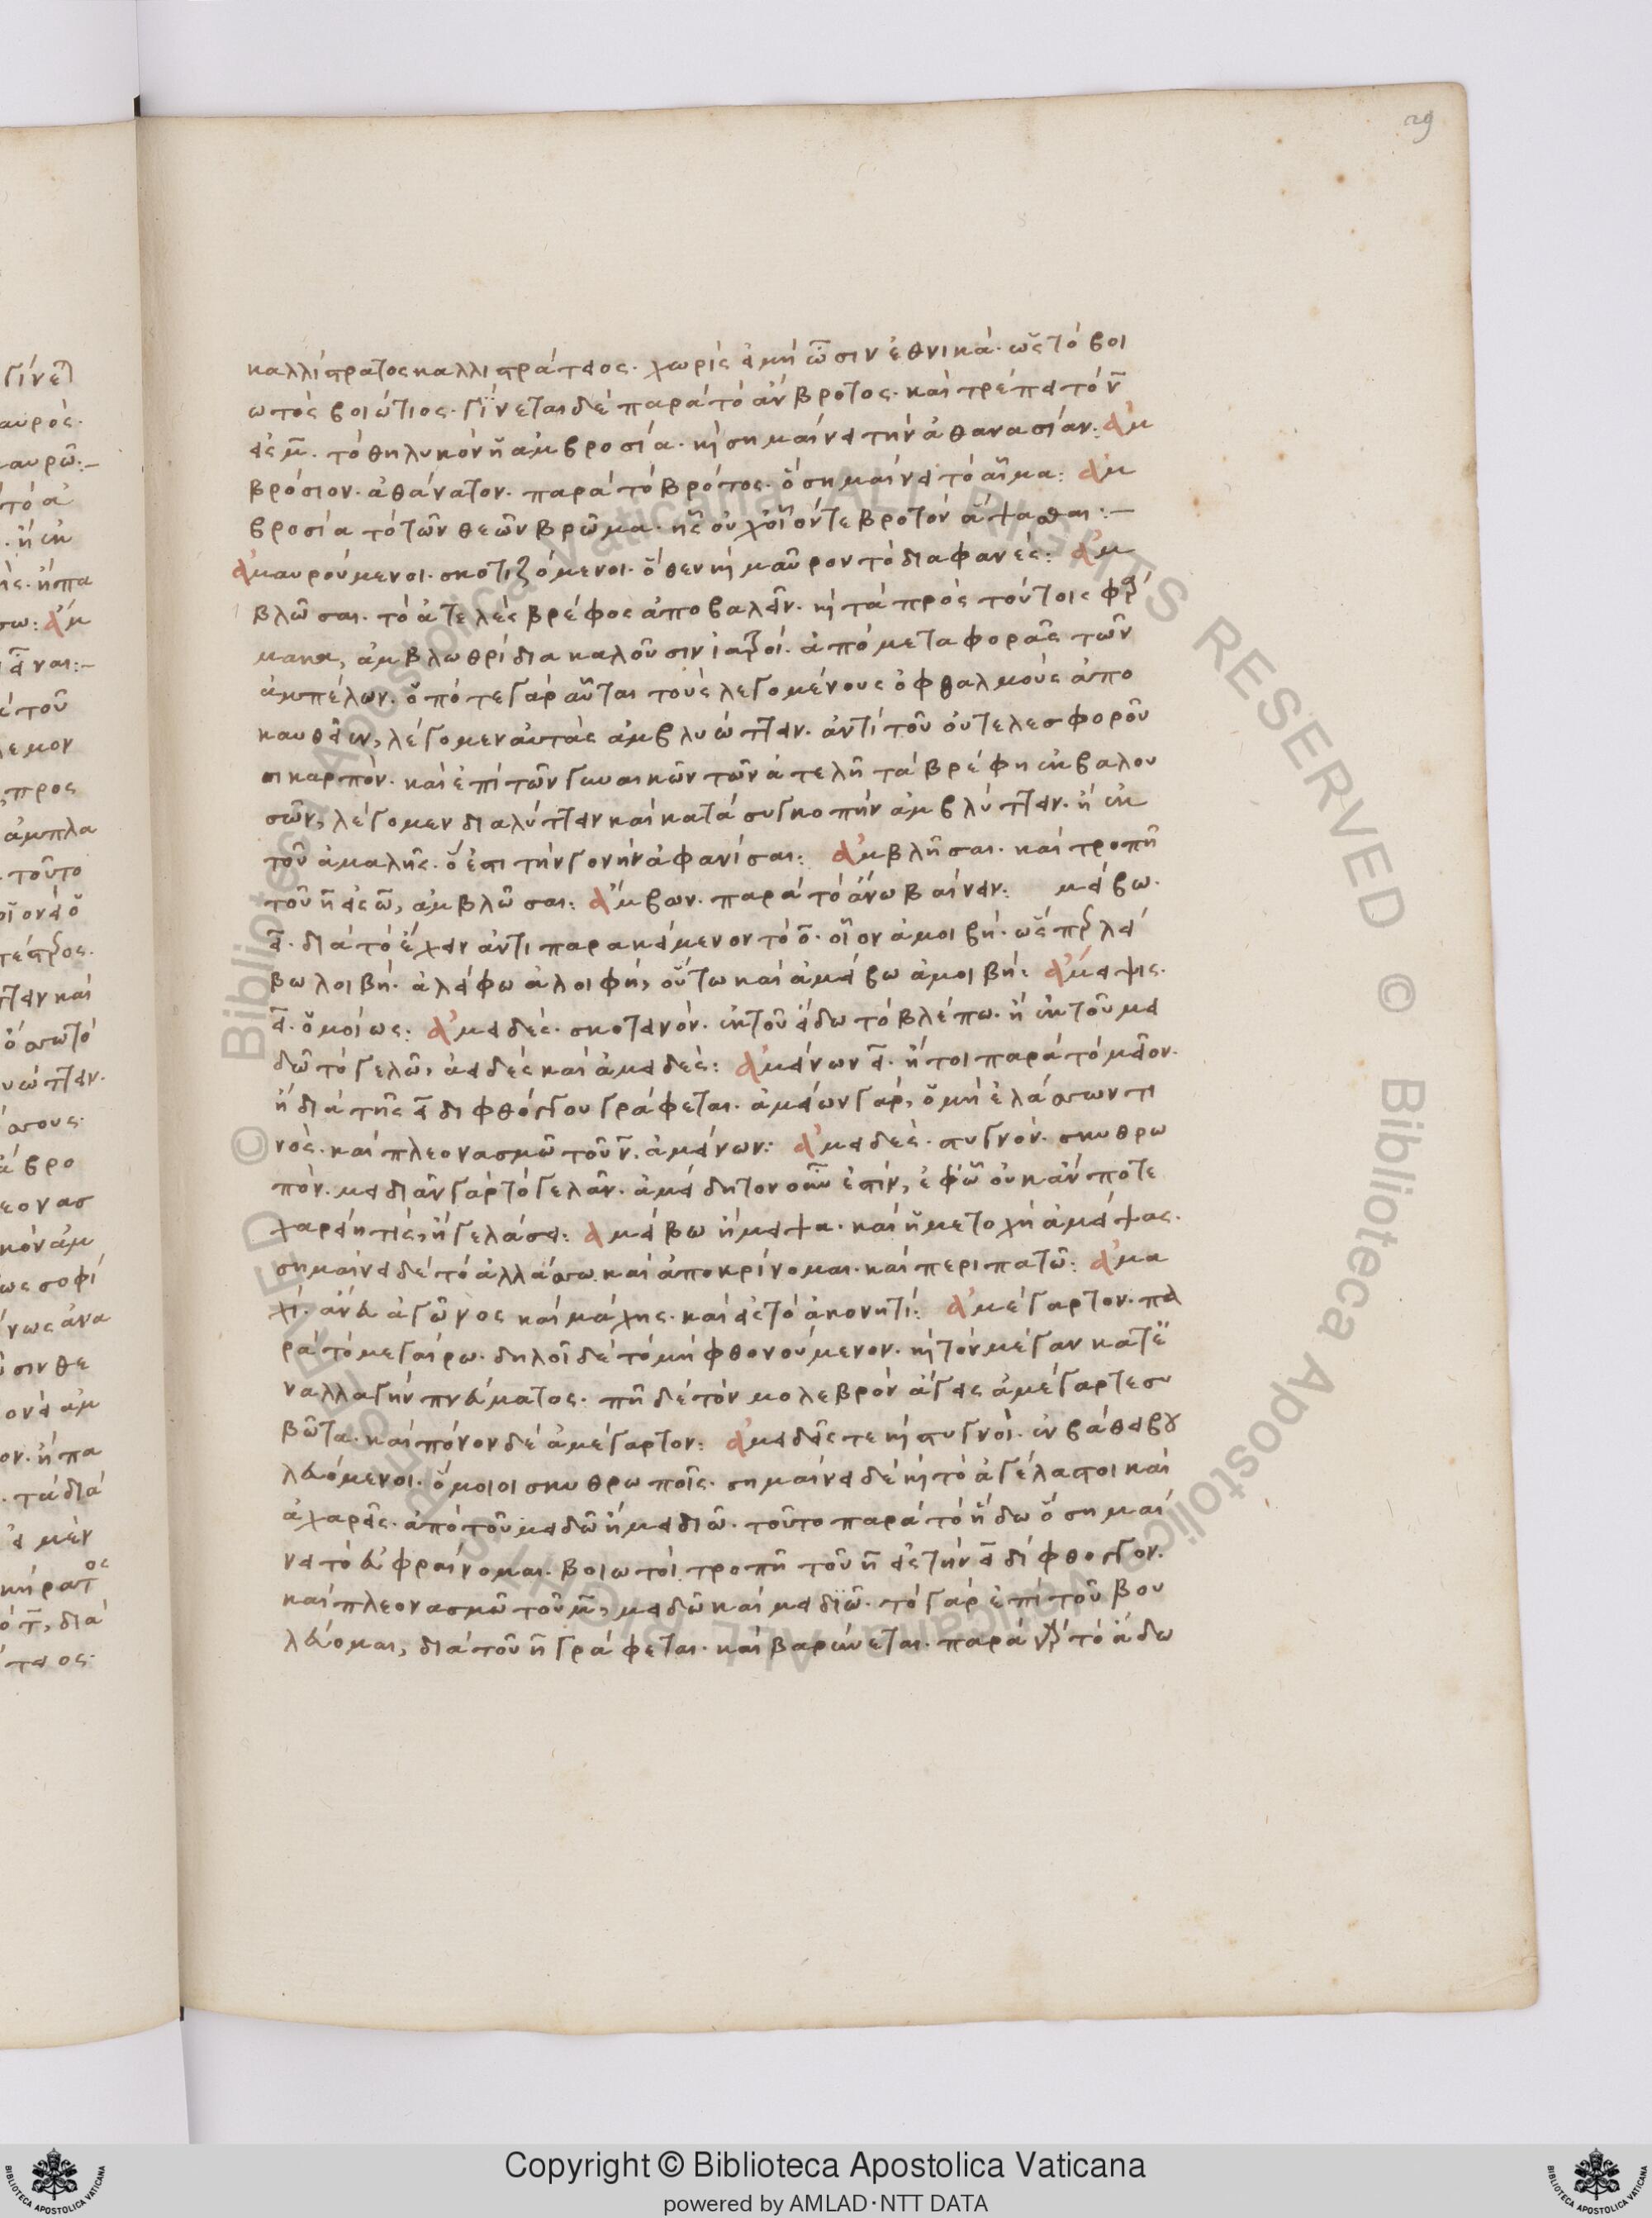 29
καλλίστρατος καλλιστράτειος. χωρὶς εἰ μὴ ὦσιν ἐθνικά. ὡς τὸ βοι
ωτὸς βοιώτιος. γίνεται δὲ παρὰ τὸ ἄνβροτος. καὶ τρέπει τὸ ν̄
εἰς μ̄. τὸ θηλυκὸν ἡ ἀμβροσία. κὴ σημαίνει τὴν ἀθανασίαν: ἀμ
βρόσιον. ἀθάνατον. παρὰ τὸ βρότος. ὃ σημαίνει τὸ αἷμα: ἀμ
βροσία τὸ τῶν θεῶν βρῶμα. ἧς οὐχ οἷόν τε βροτὸν ἅψασθαι:–
ἀμαυρούμενοι. σκοτιζόμενοι. ὅθεν κὴ μαῦρον τὸ διαφανές: ἀμ
βλῶσαι. τὸ ἀτελὲς βρέφος ἀποβαλεῖν. κὴ τὰ πρὸς τούτοις φάρ
μακα, ἀμβλωθρίδια καλοῦσιν ἰατροί. ἀπὸ μεταφορᾶς τῶν
ἀμπέλων. ὁπότε γὰρ αὗται τοὺς λεγομένους ὀφθαλμοὺς ἀπο
καυθῶσιν, λέγομεν αὐτὰς ἀμβλυώττειν. ἀντὶ τοῦ οὐ τελεσφοροῦ
σι καρπόν. καὶ ἐπὶ τῶν γυναικῶν τῶν ἀτελῆ τὰ βρέφη ἐκβαλου
σῶν, λέγομεν διαλύττειν καὶ κατὰ συγκοπὴν ἀμβλύττειν. ἢ ἐκ
τοῦ ἀμαλῆς. ὅ ἐστι τὴν γονὴν ἀφανίσαι: ἀμβλῆσαι. καὶ τροπῇ
τοῦ η̄ εἰς ω̄, ἀμβλῶσαι: ἄμβων. παρὰ τὸ ἄνω βαίνειν: μείβω.
εῑ. διὰ τὸ ἔχειν ἀντιπαρακείμενον τὸ ο̄. οἷον ἀμοιβή. ὥσπερ λεί
βω λοιβή. ἀλείφω ἀλοιφή, οὕτω καὶ ἀμείβω ἀμοιβή: ἄμειψις.
εῑ. ὁμοίως: ἀμειδές. σκοτεινόν. ἐκ τοῦ εἴδω τὸ βλέπω. ἢ ἐκ τοῦ μει
δῶ τὸ γελῶ, ἀειδὲς καὶ ἀμειδές: ἀμείνων εῑ. ἤτοι παρὰ τὸ μεῖον.
ἢ διὰ τῆς εῑ διφθόγγου γράφεται. ἀμείων γάρ, ὁ μὴ ἐλάσσων τι
νός. καὶ πλεονασμῶ τοῦ ν̄. ἀμείνων: ἀμειδές. στυγνόν. σκυθρω
πόν. μειδιᾶν γὰρ τὸ γελᾶν. ἀμείδητον οὖν ἐστίν, ἐφ' ᾧ οὐκ ἄν ποτε
χαρείη τίς, ἢ γελάσει: ἀμείβω ἤμειψα. καὶ ἡ μετοχὴ ἀμείψας.
σημαίνει δὲ τὸ ἀλλάσσω καὶ ἀποκρίνομαι. καὶ περιπατῶ: ἀμα
χί. ἄνευ ἀγῶνος καὶ μάχης. καὶ εἰς τὸ ἀκονητί: ἀμέγαρτον. πα
ρὰ τὸ μεγαίρω. δηλοῖ δὲ τὸ μὴ φθονούμενον. κὴ τὸν μέγαν κατ' ἐ
ναλλαγὴν πνεύματος. πῆ δὲ τὸν μολεβρὸν ἄγεις ἀμέγαρτε συ
βῶτα. καὶ πόνον δὲ ἀμέγαρτον: ἀμειδεῖς τε κὴ στυγνοί. ἐν βάθει βου
λευόμενοι. ὅμοιοι σκυθρωποῖς. σημαίνει δὲ κὴ τὸ ἀγέλαστοι καὶ
ἀχαρεῖς. ἀπὸ τοῦ μειδῶ ἢ μειδιῶ. τοῦτο παρὰ τὸ ἥδω ὃ σημαί
νει τὸ εὐφραίνομαι. βοιωτοὶ τροπῇ τοῦ η̄ εἰς τὴν εῑ δίφθογγον.
καὶ πλεονασμῶ τοῦ μ̄, μειδῶ καὶ μειδιῶ. τὸ γὰρ ἐπὶ τοῦ βου
λεύομαι, διὰ τοῦ η̄ γράφεται. καὶ βαρύνεται. παρὰ γὰρ τὸ εἴδω